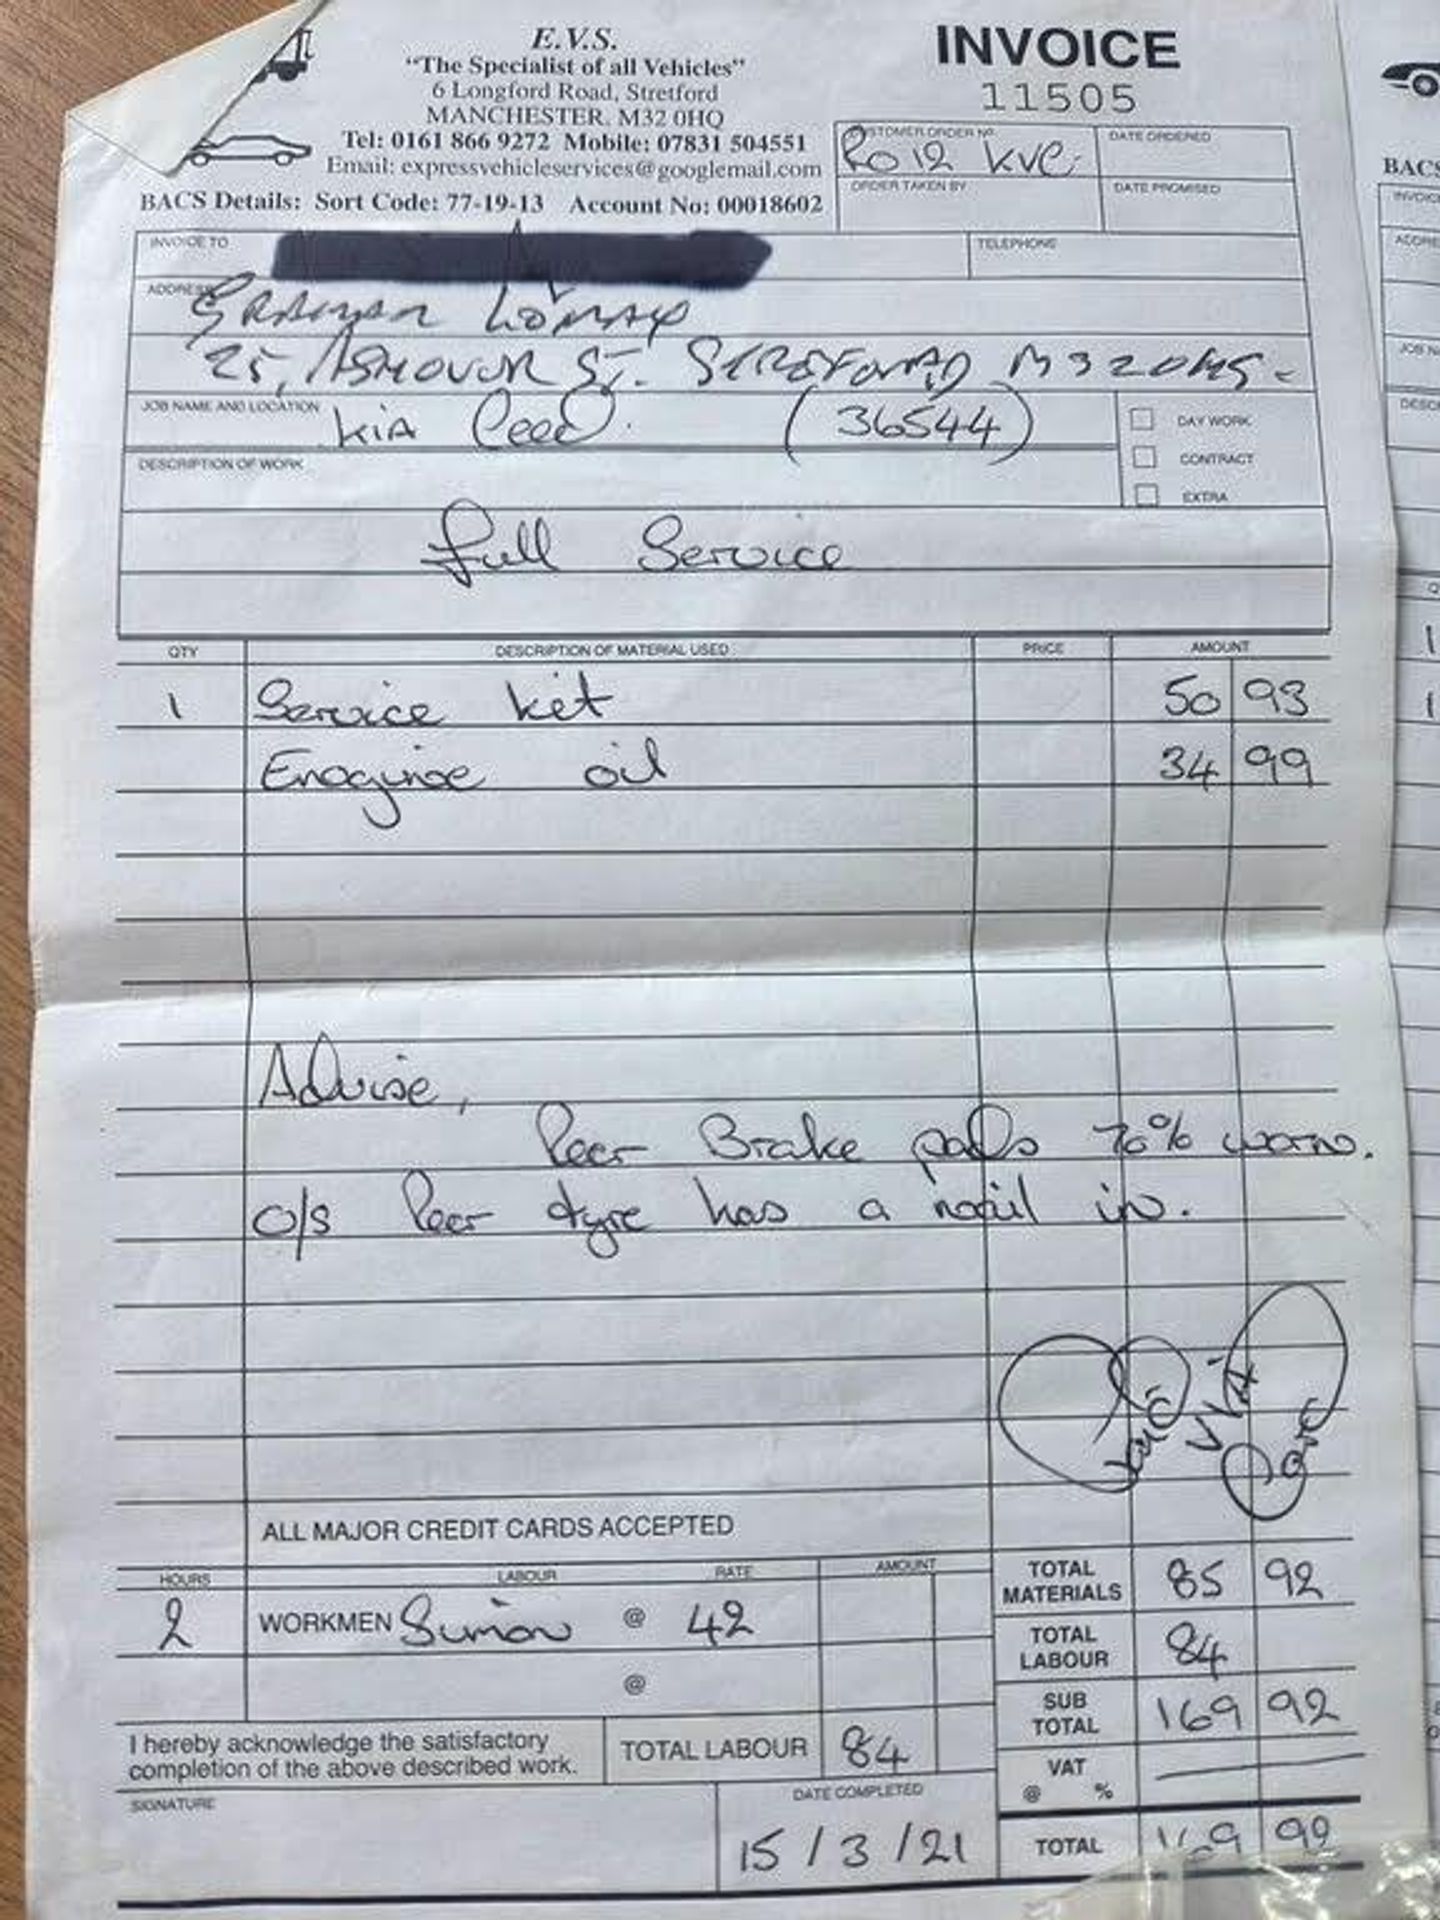 E.V.S.
"The Specialist of all Vehicles"
6 Longford Road, Stretford
MANCHESTER. M32 0HQ
Tel: 0161 866 9272 Mobile: 07831 504551
Email: expressvehicleservices@googlemail.com
BACS Details: Sort Code: 77-19-13 Account No: 00018602
INVOICE
11505
CUSTOMER ORDER No.
DATE ORDERED
RO12 KVC
ORDER TAKEN BY
DATE PROMISED
INVOICE TO
TELEPHONE
ADDRESS
GRAHAM LOMAX
25, ASHOVER ST. STRETFORD M32
JOB NAME AND LOCATION
KIA Ceed. (36544)
DAY WORK
CONTRACT
EXTRA
DESCRIPTION OF WORK
full Service
QTY DESCRIPTION OF MATERIAL USED PRICE AMOUNT
1 Service kit 50 93
Engine oil 34 99
Advise,
Rear Brake pads 70% worn.
o/s Rear tyre has a nail in.
ALL MAJOR CREDIT CARDS ACCEPTED
HOURS LABOUR RATE AMOUNT
2 WORKMEN Simon @ 42
@
TOTAL MATERIALS 85 92
TOTAL LABOUR 84
SUB TOTAL 169 92
VAT @ %
TOTAL 169 92
I hereby acknowledge the satisfactory
completion of the above described work.
TOTAL LABOUR 84
SIGNATURE
DATE COMPLETED
15/3/21
BACS
INVOICE
ADDRE
JOB N
DESC
Q
1
1